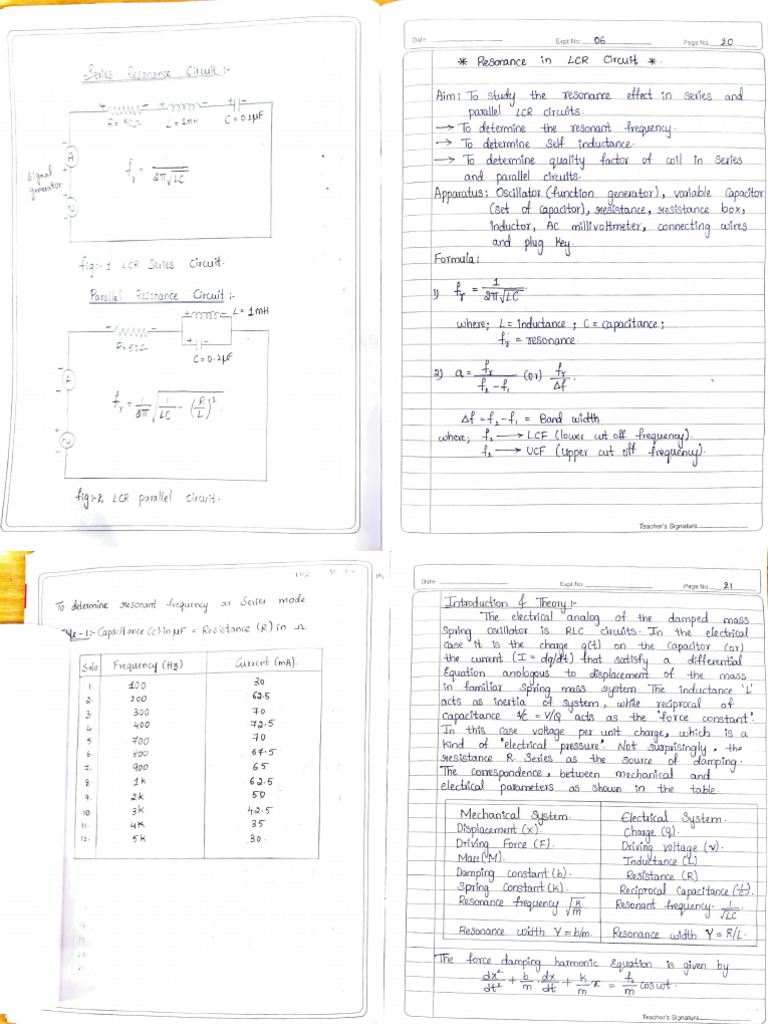 Series Resonance Circuit :-
R = 50Ω
L = 1mH
C = 0.2μF
A
Signal
generator
fr = 1/2π√LC
fig:- 1 LCR Series Circuit.
Parallel Resonance Circuit :-
L = 1mH
R = 50Ω
C = 0.2μF
A
fr = 1/2π √1/LC - (R/L)²
fig:- 2 LCR parallel circuit.
Date
Expt No: 06
Page No. 20
* Resonance in LCR Circuit *
Aim: To study the resonance effect in series and
parallel LCR circuits.
→ To determine the resonant frequency.
→ To determine self inductance.
→ To determine quality factor of coil in series
and parallel circuits.
Apparatus: Oscillator (function generator), variable Capacitor
(set of capacitor), resistance, resistance box,
inductor, AC millivoltmeter, connecting wires
and plug key.
Formula:
1) fr = 1/2π√LC
where; L = inductance ; C = capacitance ;
fr = resonance.
2) a = fr/f2 - f1 (or) fr/Δf.
Δf = f2 - f1 = Band width
where; f2 → LCF (lower cut off frequency).
f2 → UCF (upper cut off frequency).
Teacher's Signature
To determine resonant frequency as Series mode
- 1:- Capacitance (C) in μF = Resistance (R) in Ω
S.No Frequency (Hz) Current (mA).
1 100 30
2. 200 62.5
3. 300 70
4. 400 72.5
5. 700 70
6. 800 67.5
7. 900 65
8. 1k 62.5
9. 2k 50
10. 3k 42.5
11. 4k 35
12. 5k 30
Date
Expt No.
Page No. 21
Introduction & Theory :-
The electrical analog of the damped mass
Spring oscillator is RLC circuits. In the electrical
case it is the charge q(t) on the Capacitor (or)
the current (I = dq/dt) that satisfy a differential
Equation anologous to displacement of the mass
in familiar Spring mass system The inductance 'L'
acts as inertia of system, while reciprocal of
capacitance 1/C = V/Q acts as the "force constant".
In this case voltage per unit charge, which is a
kind of "electrical pressure". Not surprisingly, the
resistance R. Series as the source of damping.
The correspondence, between mechanical and
electrical parameters as shown in the table.
Mechanical System. Electrical System.
Displacement (x). Charge (q).
Driving Force (F). Driving voltage (v).
Mass (M). Inductance (L)
Damping constant (b). Resistance (R)
Spring Constant (k). Reciprocal Capacitance (1/c).
Resonance frequency √k/m Resonant frequency. 1/√LC
Resonance width γ = b/m. Resonance width γ = R/L.
The force damping harmonic Equation is given by
dx²/dt² + b/m . dx/dt + k/m x = f2/m cos ωt.
Teacher's Signature